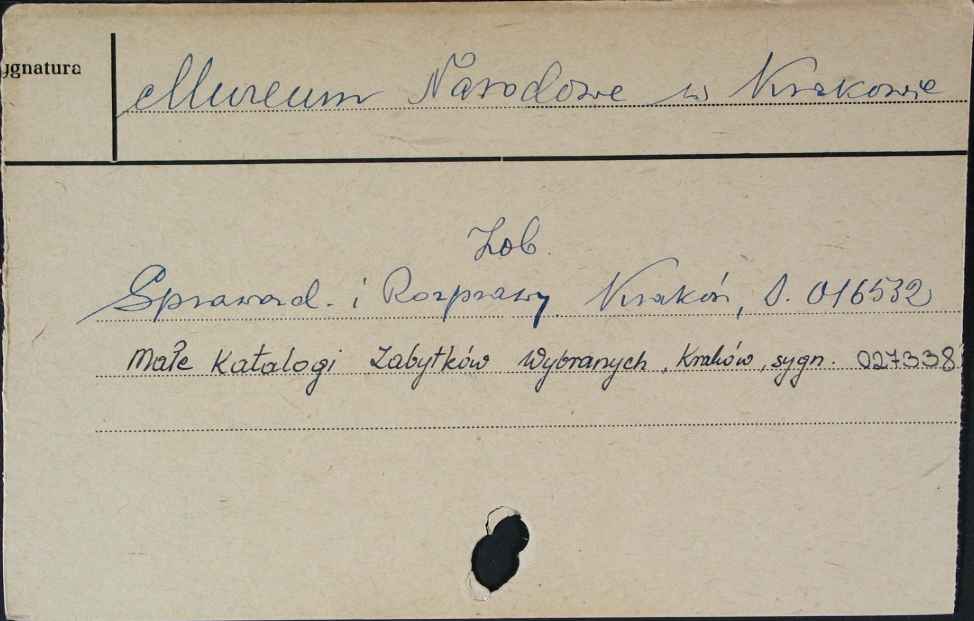 ygnatura
Muzeum Narodowe w Krakowie
Zob.
Sprawozd. i Rozprawy Kraków, S. 016532
Małe Katalogi Zabytków Wybranych, Kraków, sygn. 027338